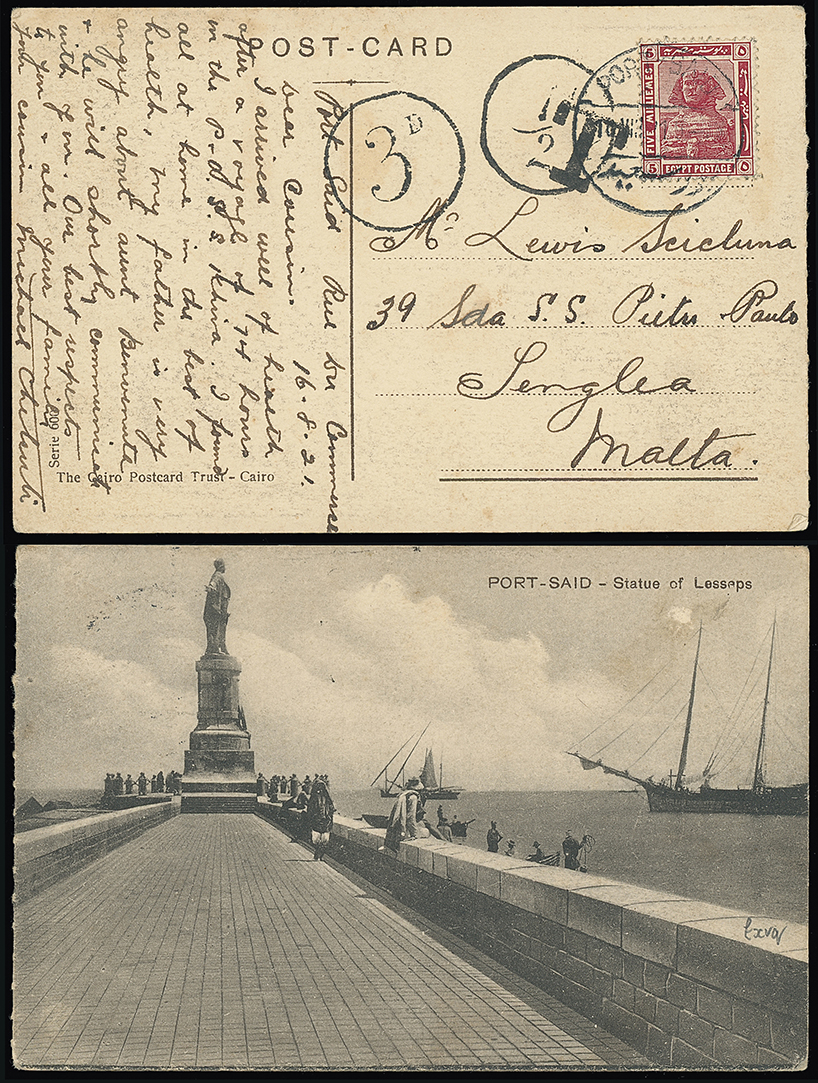 POST-CARD
Port Said Rue du Commerce
16.8.21.
Dear Cousin,
I arrived well of health
after a voyage of 74 hours
in the P. & S.S. Khiva. I found
all at home in the best of
health, my father is very
angry about aunt Benvenuta
& he will shortly communicate
with you. Our best respects
to you & all your family
your cousin Michael
Serie 608
The Cairo Postcard Trust - Cairo
3D
1/2
T
PORT
FIVE MILLIEMES
5
٥
EGYPT POSTAGE
Mr Lewis Scicluna
39 Sda S.S. Pietru Paulo
Senglea
Malta.
PORT-SAID - Statue of Lesseps